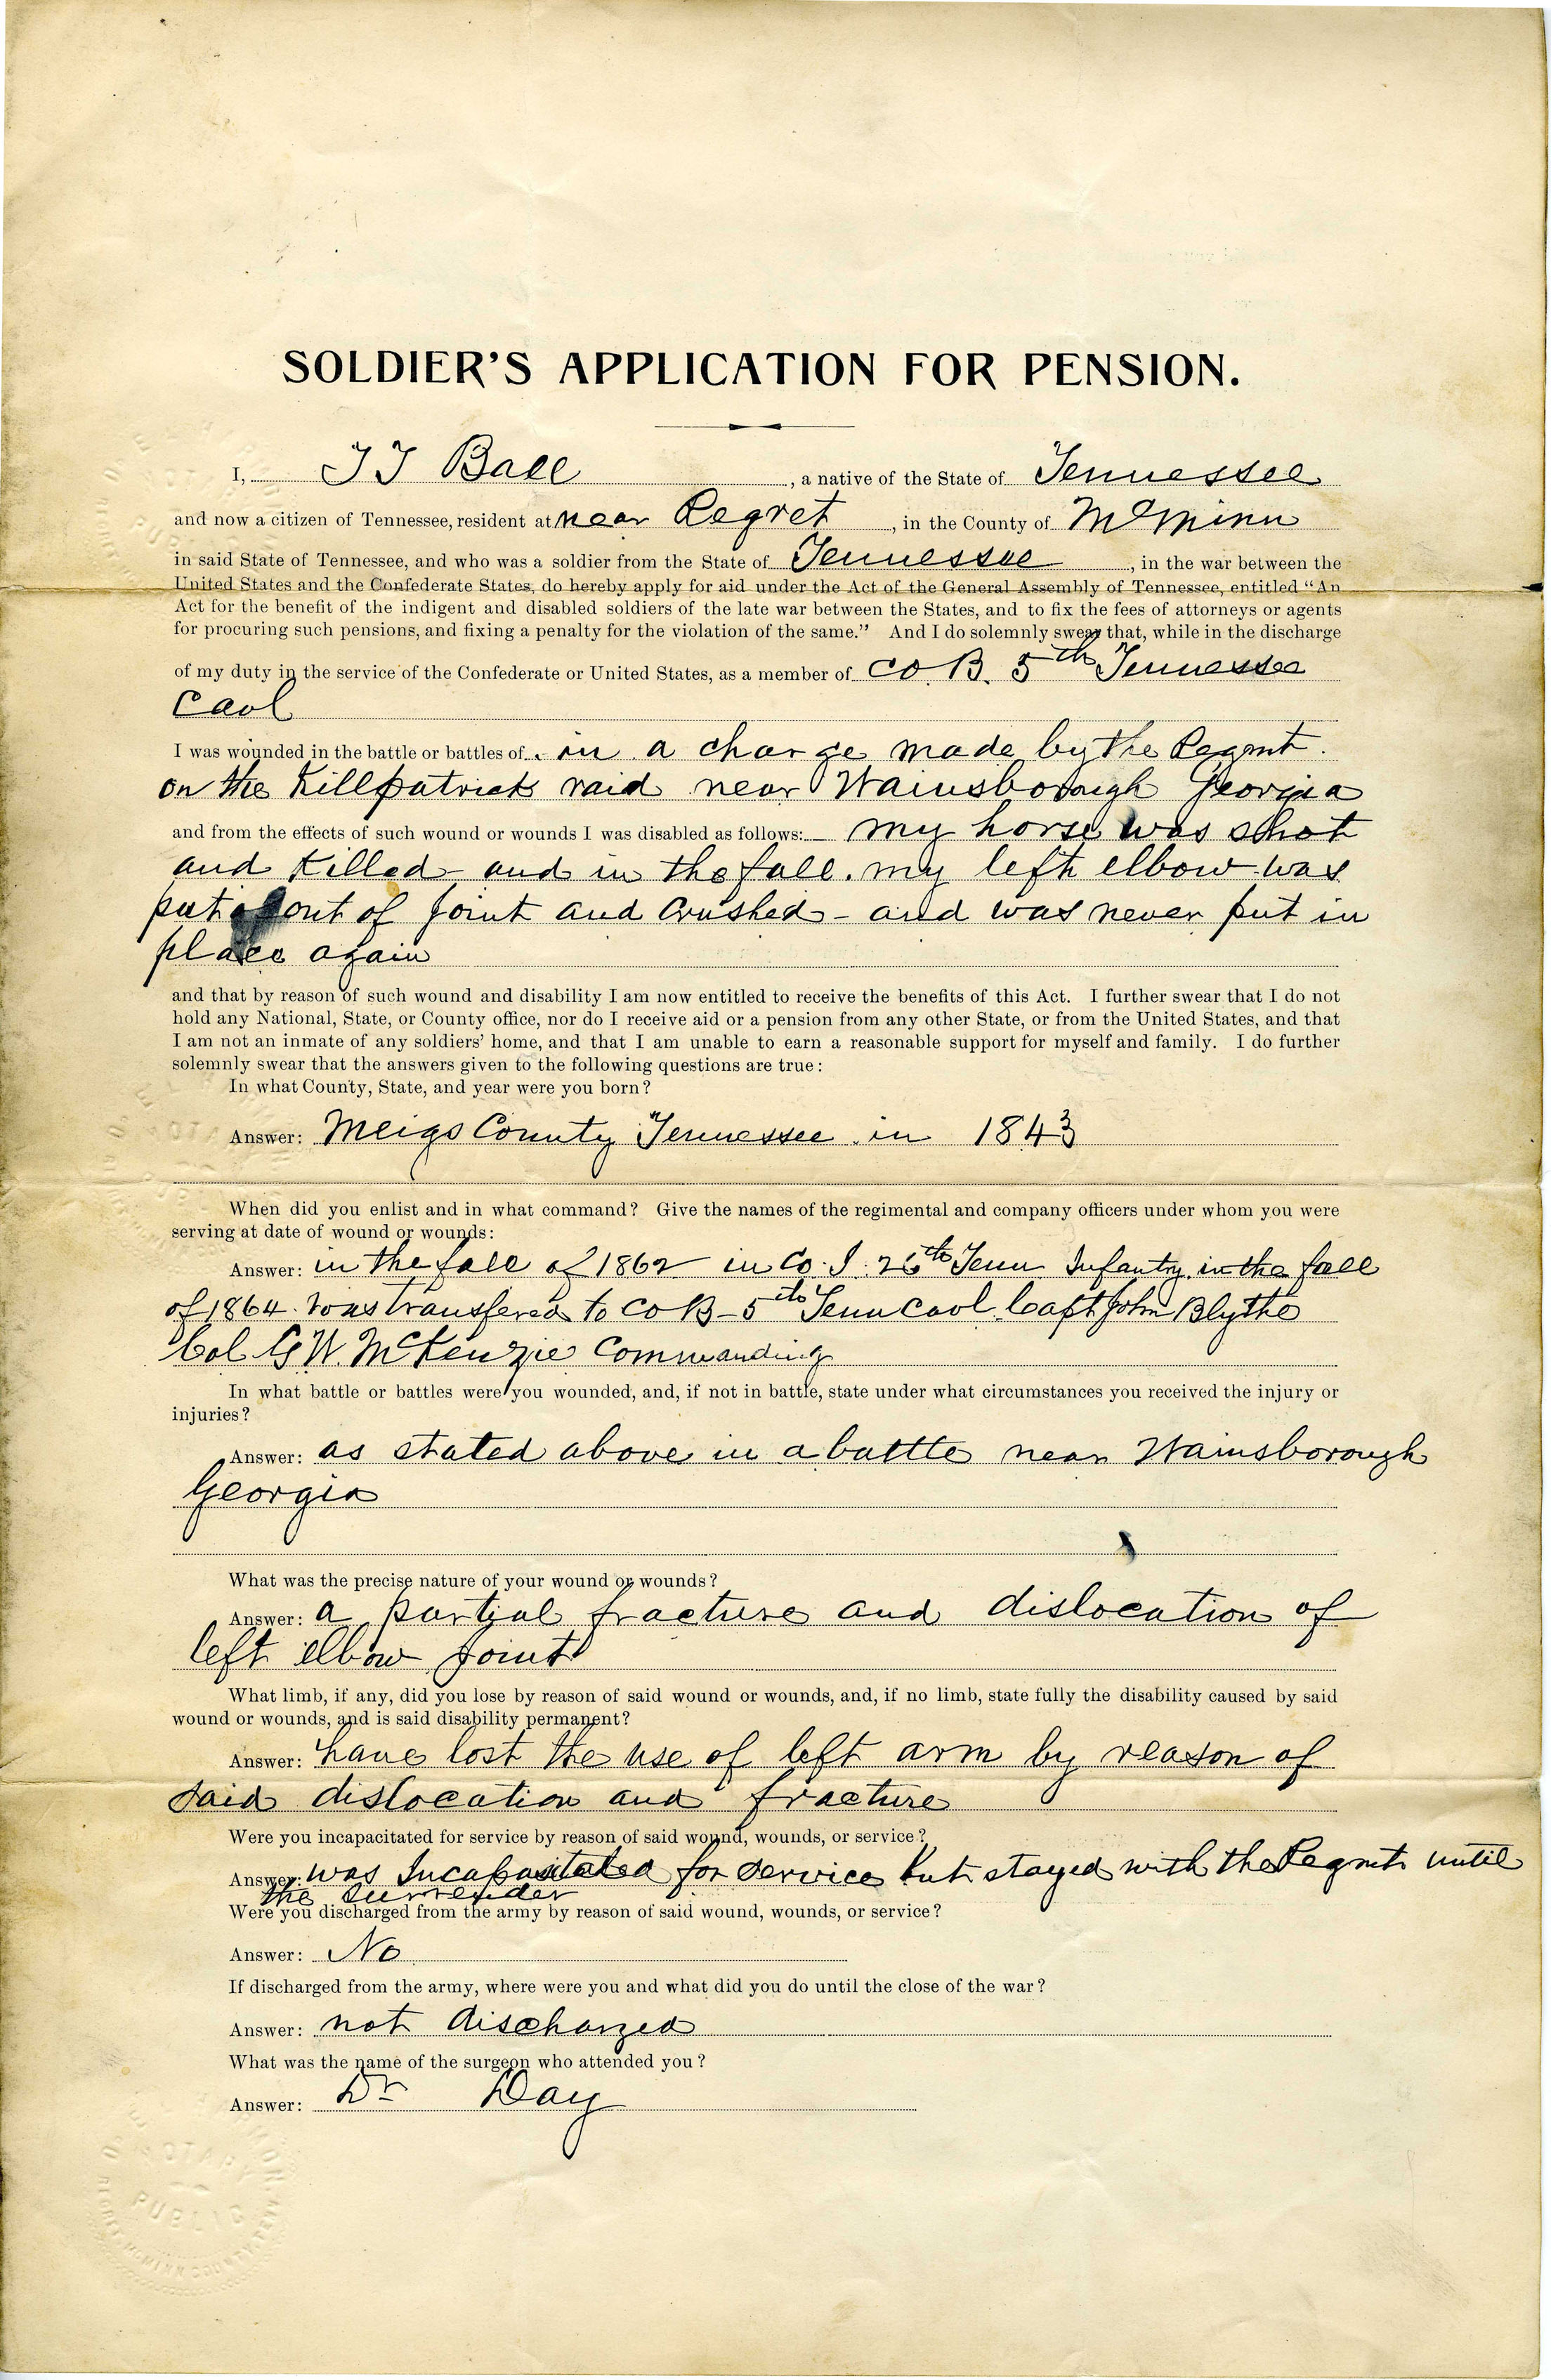 SOLDIER'S APPLICATION FOR PENSION.
I, J J Ball, a native of the State of Tennessee
and now a citizen of Tennessee, resident at near Regret, in the County of McMinn
in said State of Tennessee, and who was a soldier from the State of Tennessee, in the war between the
United States and the Confederate States, do hereby apply for aid under the Act of the General Assembly of Tennessee, entitled "An
Act for the benefit of the indigent and disabled soldiers of the late war between the States, and to fix the fees of attorneys or agents
for procuring such pensions, and fixing a penalty for the violation of the same." And I do solemnly swear that, while in the discharge
of my duty in the service of the Confederate or United States, as a member of Co B. 5th Tennessee
Cavl
I was wounded in the battle or battles of in a charge made by the Regmt.
on the Killpatrick raid near Wainsborough Georgia
and from the effects of such wound or wounds I was disabled as follows: My horse was shot
and killed and in the fall. my left elbow was
put out of joint and crushed - and was never put in
place again
and that by reason of such wound and disability I am now entitled to receive the benefits of this Act. I further swear that I do not
hold any National, State, or County office, nor do I receive aid or a pension from any other State, or from the United States, and that
I am not an inmate of any soldiers' home, and that I am unable to earn a reasonable support for myself and family. I do further
solemnly swear that the answers given to the following questions are true:
In what County, State, and year were you born?
Answer: Meigs County Tennessee in 1843
When did you enlist and in what command? Give the names of the regimental and company officers under whom you were
serving at date of wound or wounds:
Answer: in the fall of 1862 in Co. I. 26th Tenn Infantry in the fall
of 1864. was transfered to Co B - 5th Tenn Cavl Capt John Blythe
Col G W. McKenzie Commanding
In what battle or battles were you wounded, and, if not in battle, state under what circumstances you received the injury or
injuries?
Answer: as stated above in a battle near Wainsborough
Georgia
What was the precise nature of your wound or wounds?
Answer: a partial fracture and dislocation of
left elbow joint
What limb, if any, did you lose by reason of said wound or wounds, and, if no limb, state fully the disability caused by said
wound or wounds, and is said disability permanent?
Answer: have lost the use of left arm by reason of
said dislocation and fracture
Were you incapacitated for service by reason of said wound, wounds, or service?
Answer: was Incapasitated for service but stayed with the Regmt until
the surrender
Were you discharged from the army by reason of said wound, wounds, or service?
Answer: No
If discharged from the army, where were you and what did you do until the close of the war?
Answer: not discharged
What was the name of the surgeon who attended you?
Answer: Dr Day
NOTARY
PUBLIC
REGRET, McMINN COUNTY, TENN.